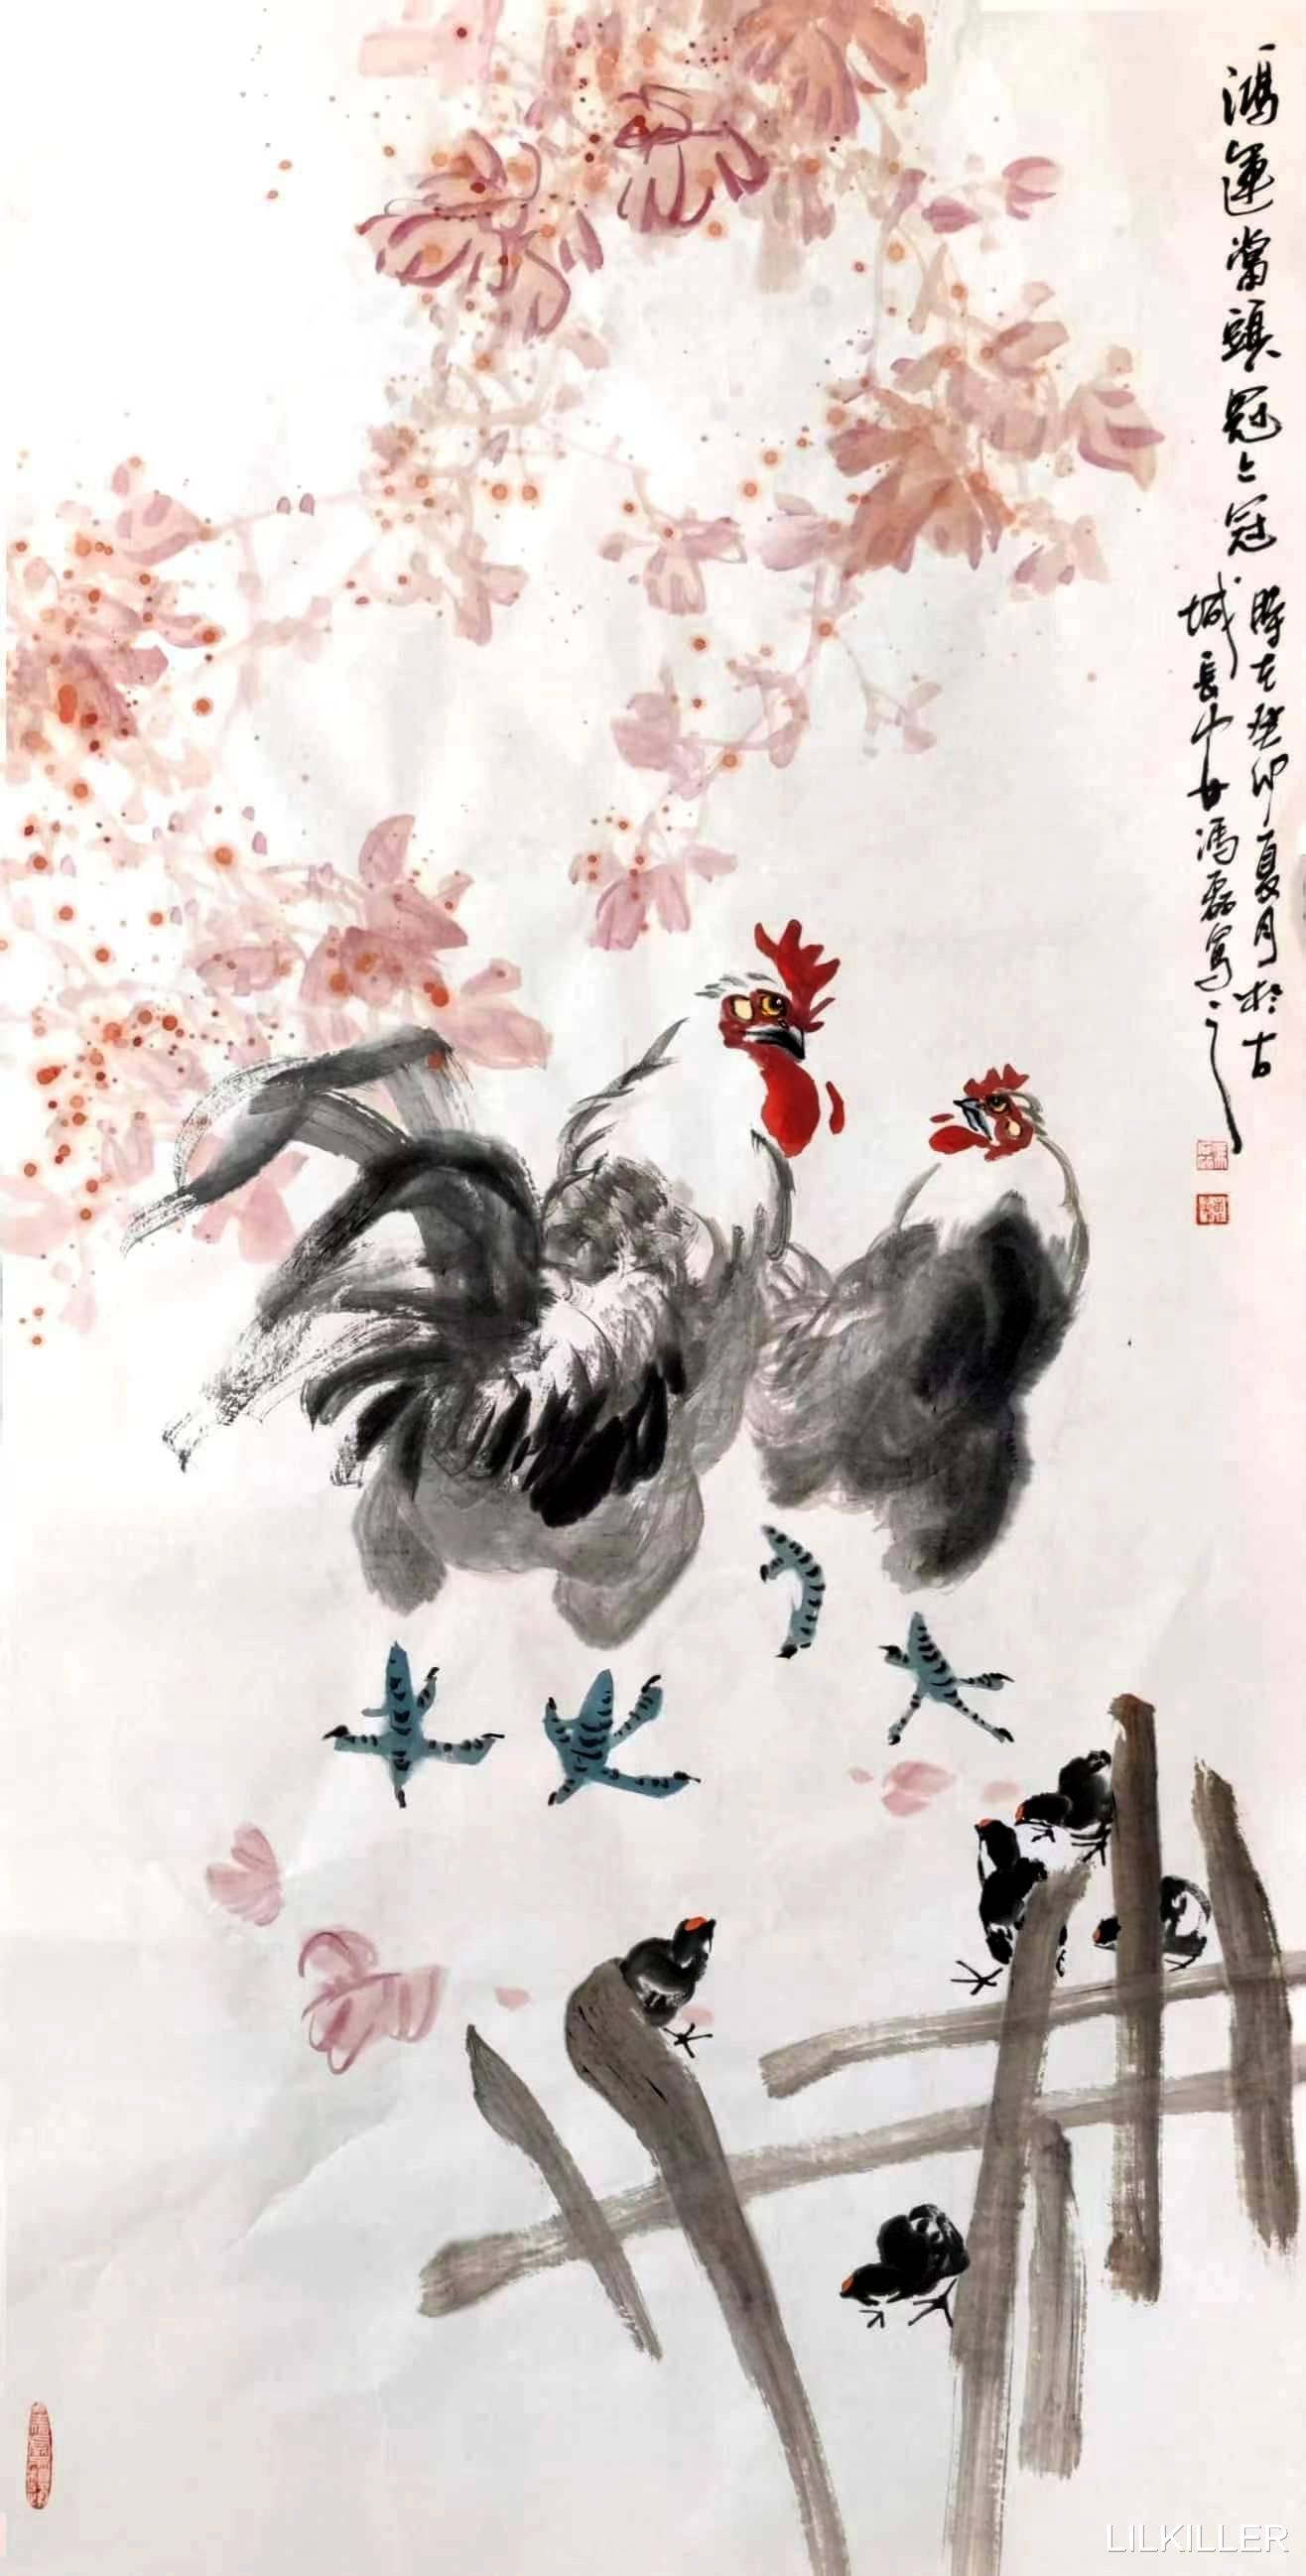 鴻運當頭冠上冠
時在癸卯夏月於古
城長安馮磊寫之
LILKILLER